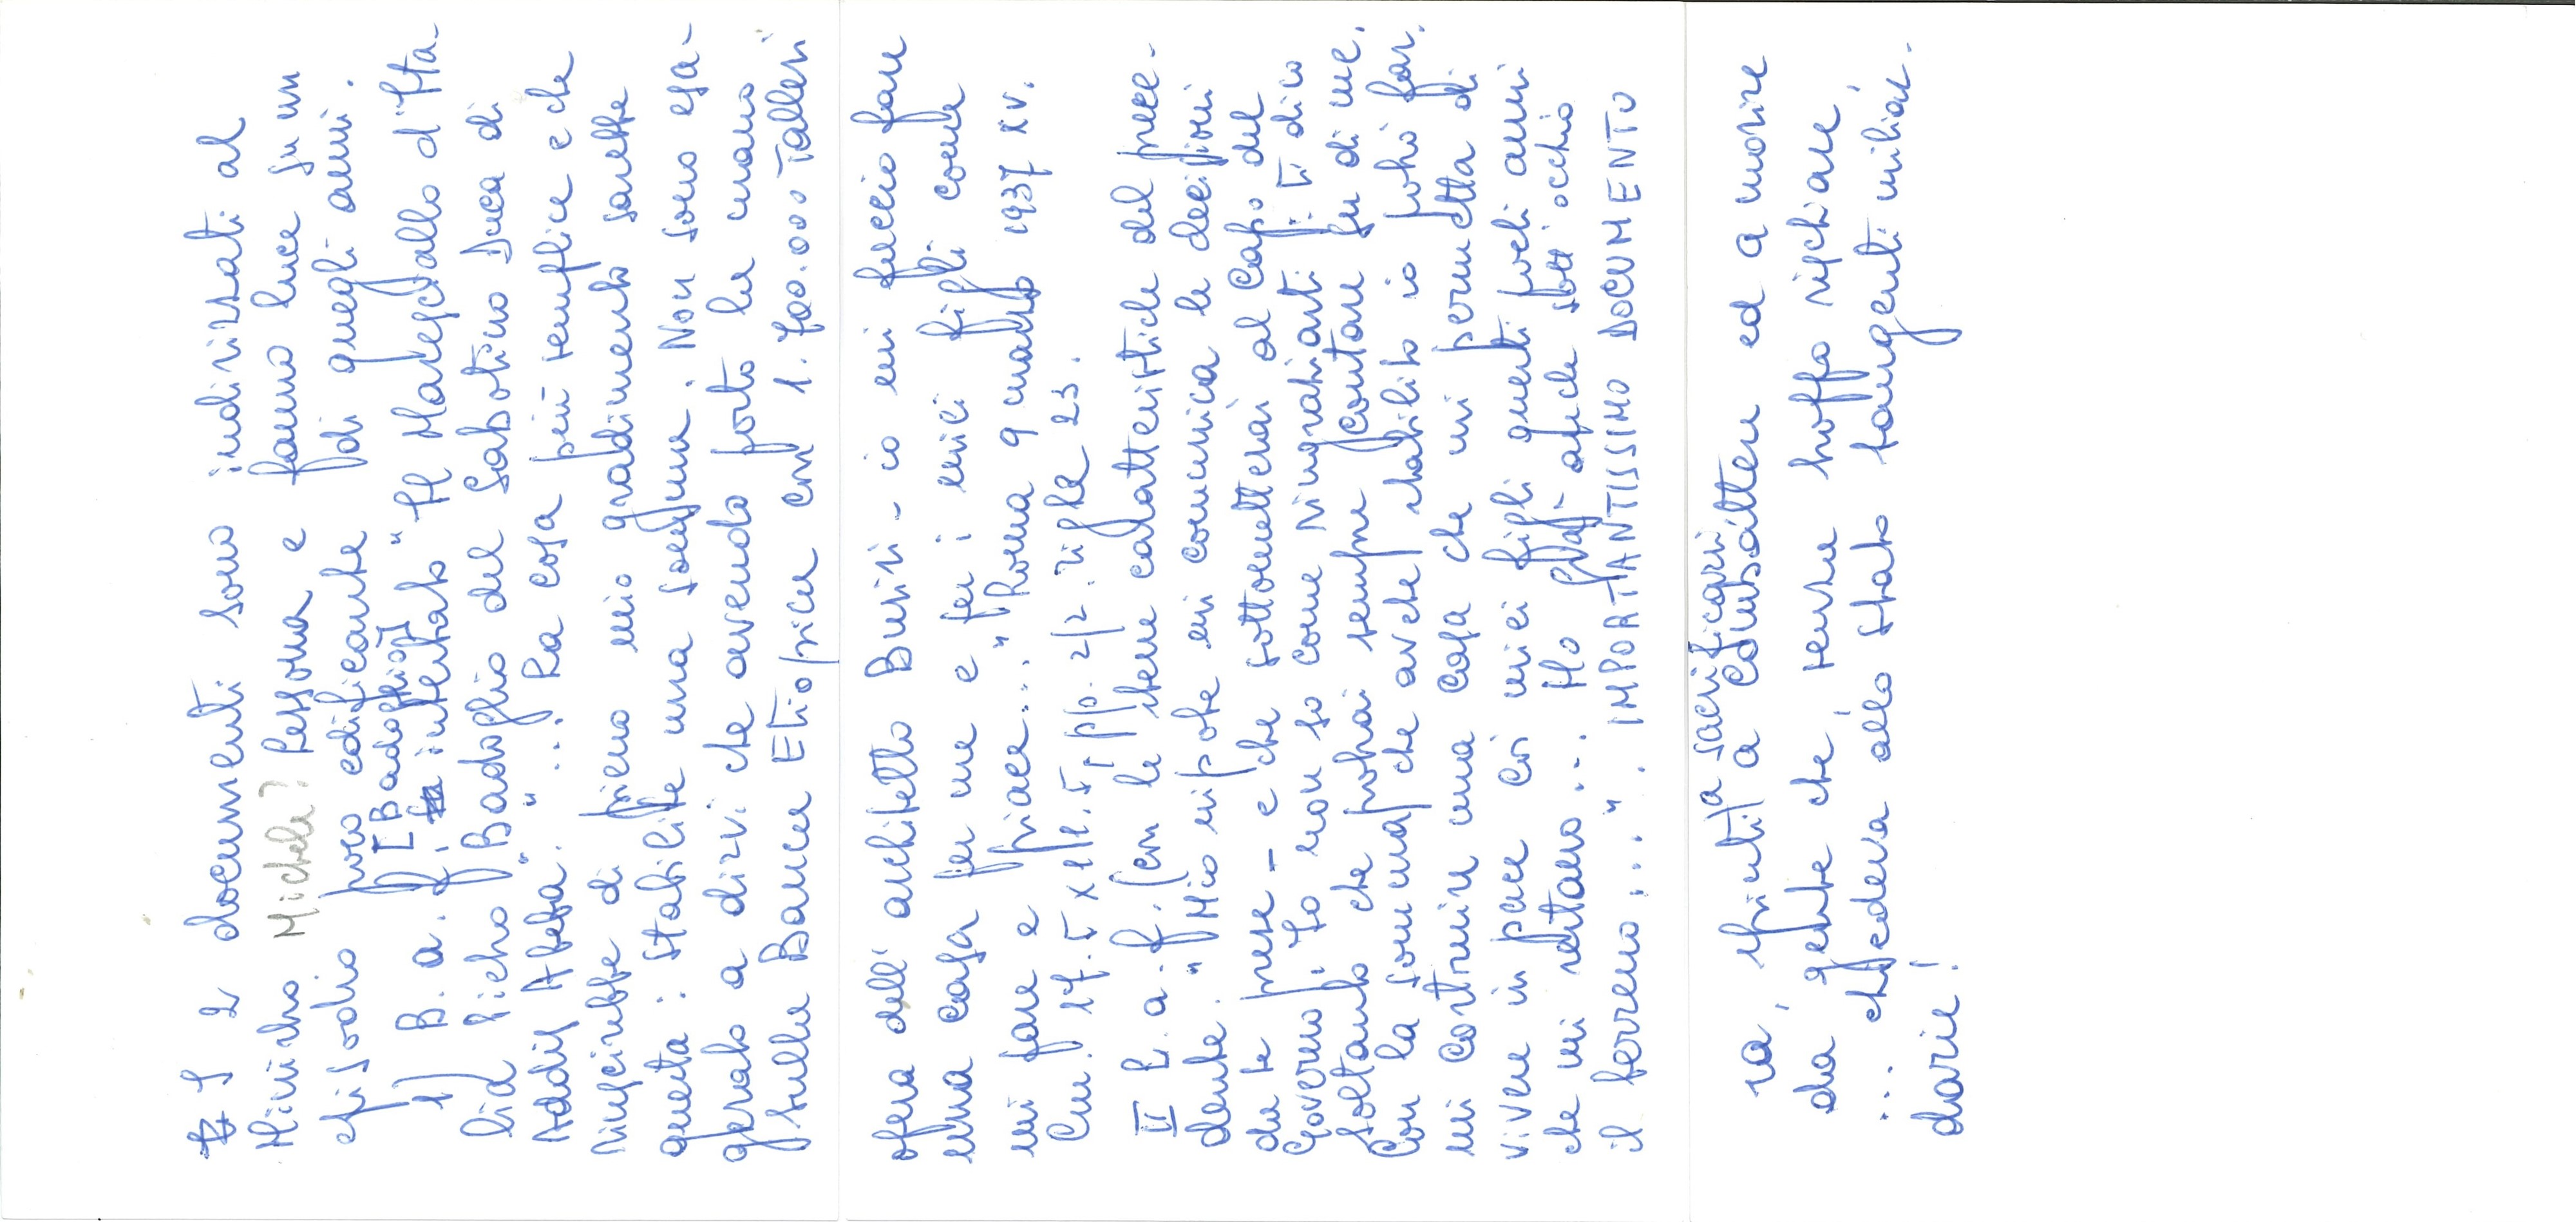 I 2 documenti sono indirizzati al
Ministro Michele? Lessona e fanno luce su un
episodio poco edificante di quegli anni.
[Badoglio]
1) B. a. f. intestato "Il Maresciallo d'Ita-
lia Pietro Badoglio del Sabotino Duca di
Addis Abeba." "... La cosa più semplice e che
riuscirebbe di pieno mio gradimento sarebbe
questa: stabilite una somma. Non sono esa-
gerato a dirvi che avendo posto la mano
sulla Banca Etiopica con 1.700.000 Talleri
opera dell'architetto Busiri - io mi faccio fare
una casa per me e per i miei figli come
mi pare e piace..." Roma 9 marzo 1937 XV.
Cm. 17.5 x 11.5, pp. 2/2 righe 23.
II L. a. f. con le stesse caratteristiche del prece-
dente. "Mio nipote mi comunica le decisioni
da te prese - e che sottometterai al Capo del
Governo. Io non so come ringraziarti: ti dico
soltanto che potrai sempre contare su di me.
Con la somma che avete stabilito io potrò far-
mi costruire una casa che mi permetta di
vivere in pace coi miei figli questi pochi anni
che mi restano... Ho già anche sott'occhio
il terreno...". IMPORTANTISSIMO DOCUMENTO
a sacrificarsi
va, spinti, a combattere ed a morire
da gente che, senza troppo rischiare,
... chiedeva allo stato tangenti miliar-
darie!